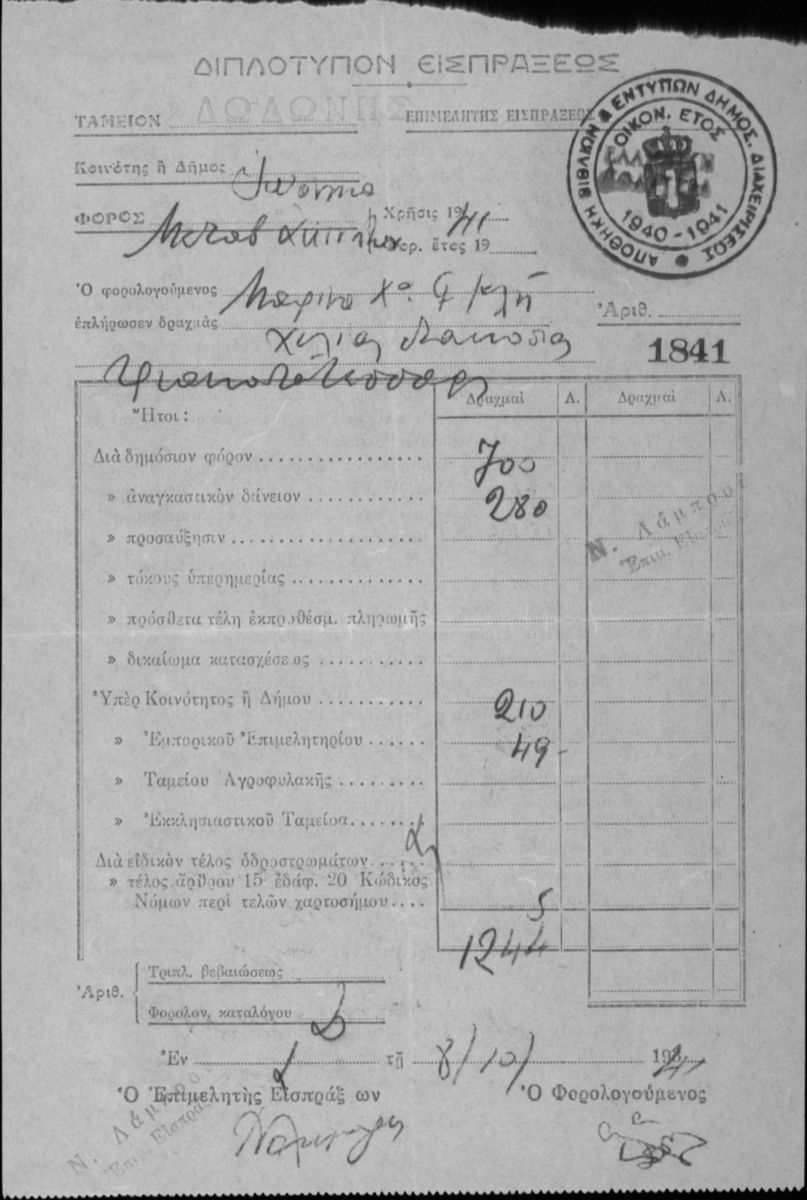 ΔΙΠΛΟΤΥΠΟΝ ΕΙΣΠΡΑΞΕΩΣ
ΤΑΜΕΙΟΝ
ΕΠΙΜΕΛΗΤΗΣ ΕΙΣΠΡΑΞΕΩΣ
ΑΠΟΘΗΚΗ ΒΙΒΛΙΩΝ & ΕΝΤΥΠΩΝ ΔΗΜΟΣ. ΔΙΑΧΕΙΡΙΣΕΩΣ
ΟΙΚΟΝ. ΕΤΟΣ
1940-1941
Κοινότης ἢ Δῆμος
ΦΟΡΟΣ
Χρῆσις 1941
Φορ. ἔτος 19
Ὁ φορολογούμενος
ἐπλήρωσεν δραχμὰς Χιλίας διακοσίας
Ἀριθ.
1841
Δραχμαὶ Λ. Δραχμαὶ Λ.
Ἤτοι:
Διὰ δημόσιον φόρον 700
» ἀναγκαστικὸν δάνειον 280
» προσαύξησιν
» τόκους ὑπερημερίας
» πρόσθετα τέλη ἐκπροθέσμ. πληρωμῆς
» δικαίωμα κατασχέσεως
Ὑπὲρ Κοινότητος ἢ Δήμου 210
» Ἐμπορικοῦ Ἐπιμελητηρίου 49-
» Ταμείου Αγροφυλακῆς
» Ἐκκλησιαστικοῦ Ταμείοα
Διὰ εἰδικὸν τέλος ὁδροστρωμάτων
» τέλος ἄρθρου 15 ἐδάφ. 20 Κώδικος
Νόμων περὶ τελῶν χαρτοσήμου 5
1244
Ν. Λάμπρου
Ἐπιμ. Εἰσπρά
Ἀριθ.
Τριπλ. βεβαιώσεως
Φορολον. καταλόγου
Ἐν τῇ 8/10/ 1941
Ὁ Ἐπιμελητὴς Εἰσπράξ ων
Ὁ Φορολογούμενος
Ν. Λάμπρου
Ἐπιμ. Εἰσπρά